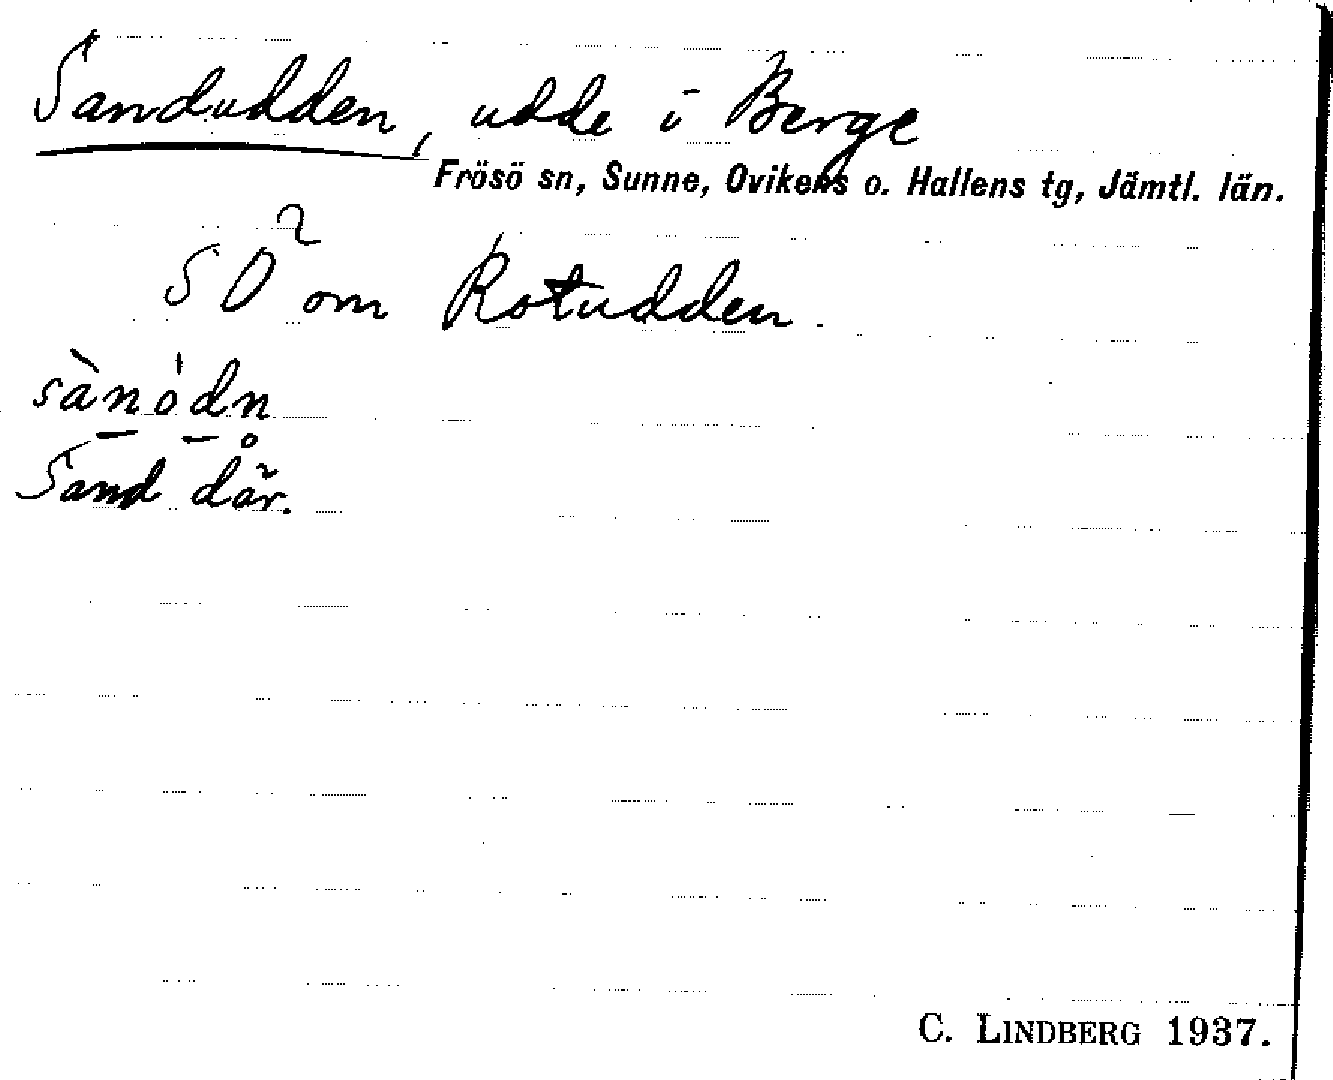 Sandudden, udde i Berge
Frösö sn, Sunne, Ovikens o. Hallens tg, Jämtl. län.
SO² om Rotudden.
sànódn
Sand där.
C. LINDBERG 1937.